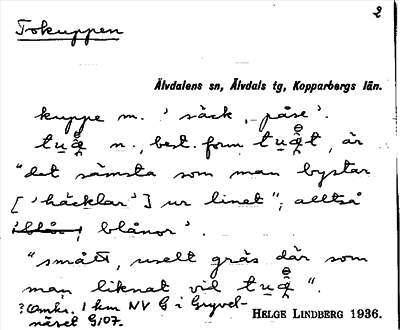 2
Tokuppen
Älvdalens sn, Älvdals tg, Kopparbergs län.
kuppe m. 'säck, påse'.
n., best. form är
"det sämsta som man bystar
['häcklar'] ur linet"; alltså
'blån', blånor'.
"smått, uselt gräs där som
man liknat vid
?Omkr. 1 km NV G i Gryvel-
näset G107.
HELGE LINDBERG 1936.